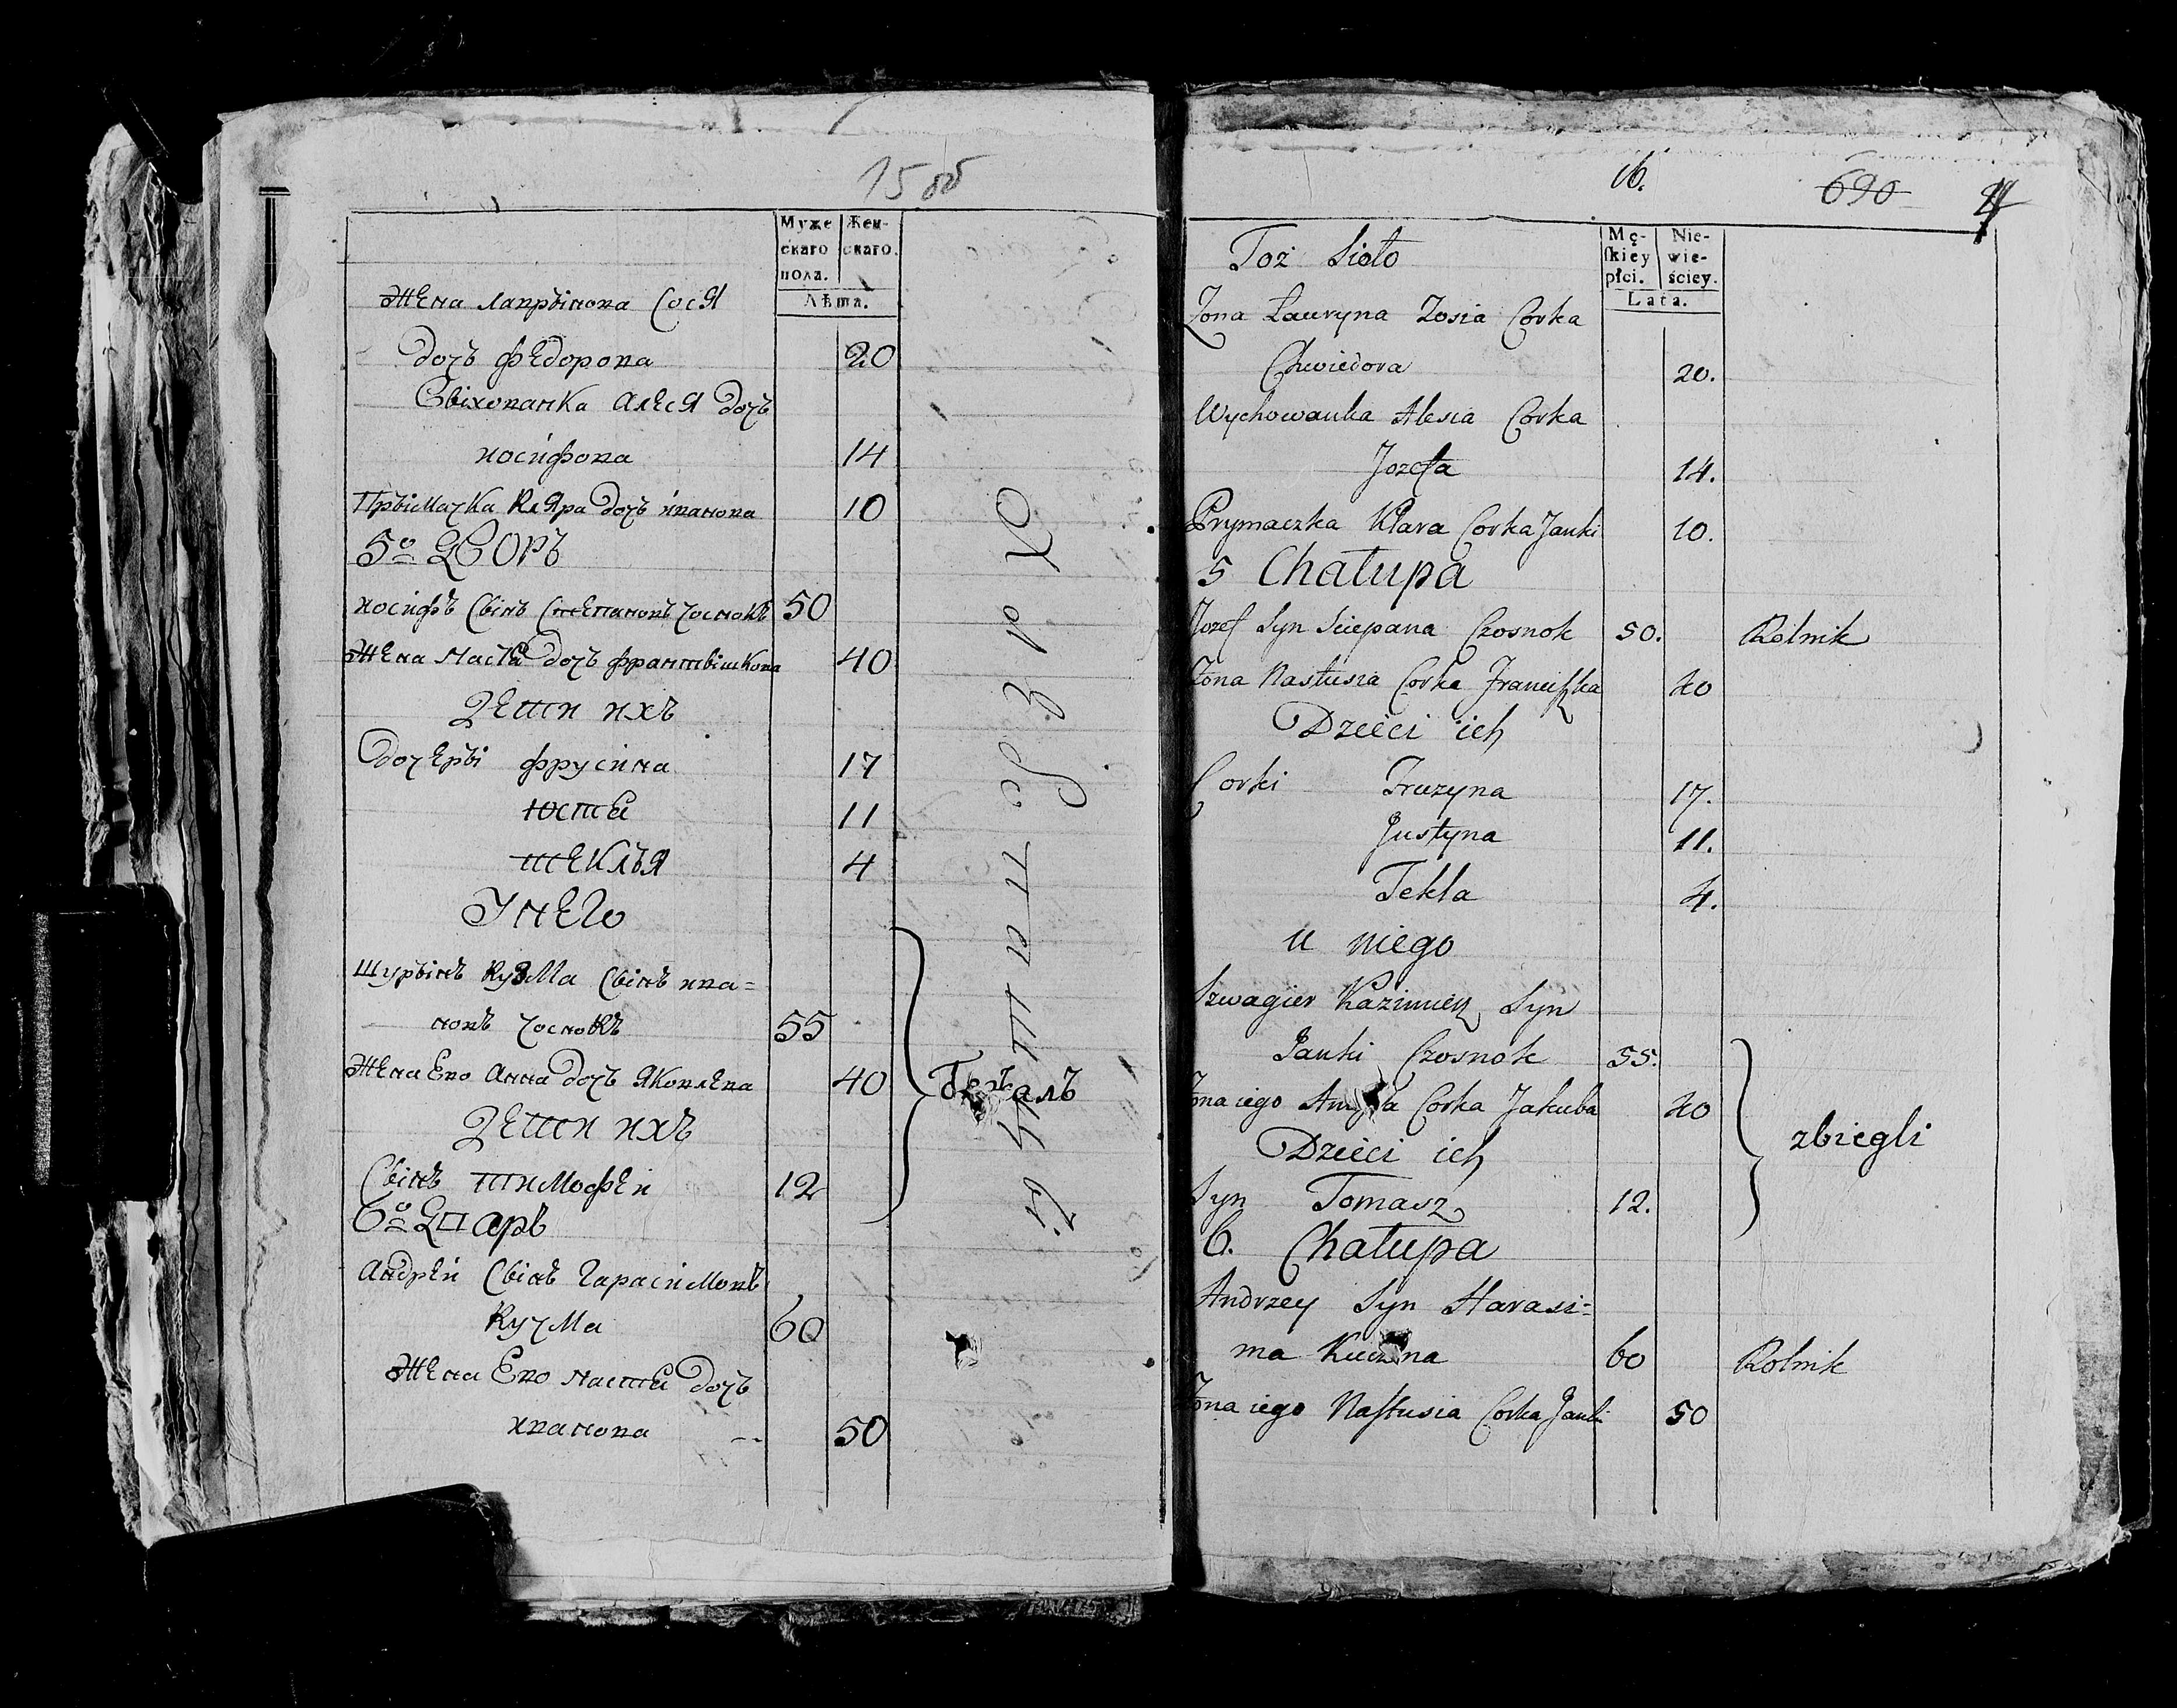 15 об
Муже
скаго
пола.
Жен-
скаго.
Лѣта.
Жена лаврынова Сося
дочъ федорова 20
Выхованка Алеся дочъ
иосифова 14
Прымачка Кляра дочъ иванова 10
5о ДВОРЪ
иосифъ Сынъ Степановъ Чоснокъ 50
Жена Настя дочъ франтышкова 40
Дети ихъ
дочеры фрусина 17
Юстя 11
Теклья 4
У него
Шурынъ Кузма Сынъ ива=
новъ Чоснокъ 55
Жена Ево Анна дочъ Яковлева 40
Дети ихъ
Сынъ Тимофеи 12
Бежалъ
6о Дваръ
Андреи Сынъ Гарасимовъ
Кучма 60
Жена Ево Настя дочъ
иванова -- 50
16.
690
Toż Sioło
Mę-
skiey
płci.
Nie-
wie-
ściey.
Lata.
Żona Ławryna Zosia Corka
Chwiedora 20.
Wychowanka Alesia Corka
Jozefa 14.
Prymaczka Klara Corka Janki 10.
5 Chałupa
Jozef Syn Sciepana Czosnok 50. Rolnik
Żona Nastusia Corka Franciszka 40
Dzieci ich
Corki Fruzyna 17.
Justyna 11.
Tekla 4.
u niego
Szwagier Kazimierz Syn
Janki Czosnok 55.
Żona iego Corka Jakuba 40
Dzieci ich
zbiegli
Syn Tomasz 12.
6. Chałupa
Andrzey Syn Harasi=
ma Kuczma 60 Rolnik
Żona iego Nastusia Corka Janki 50